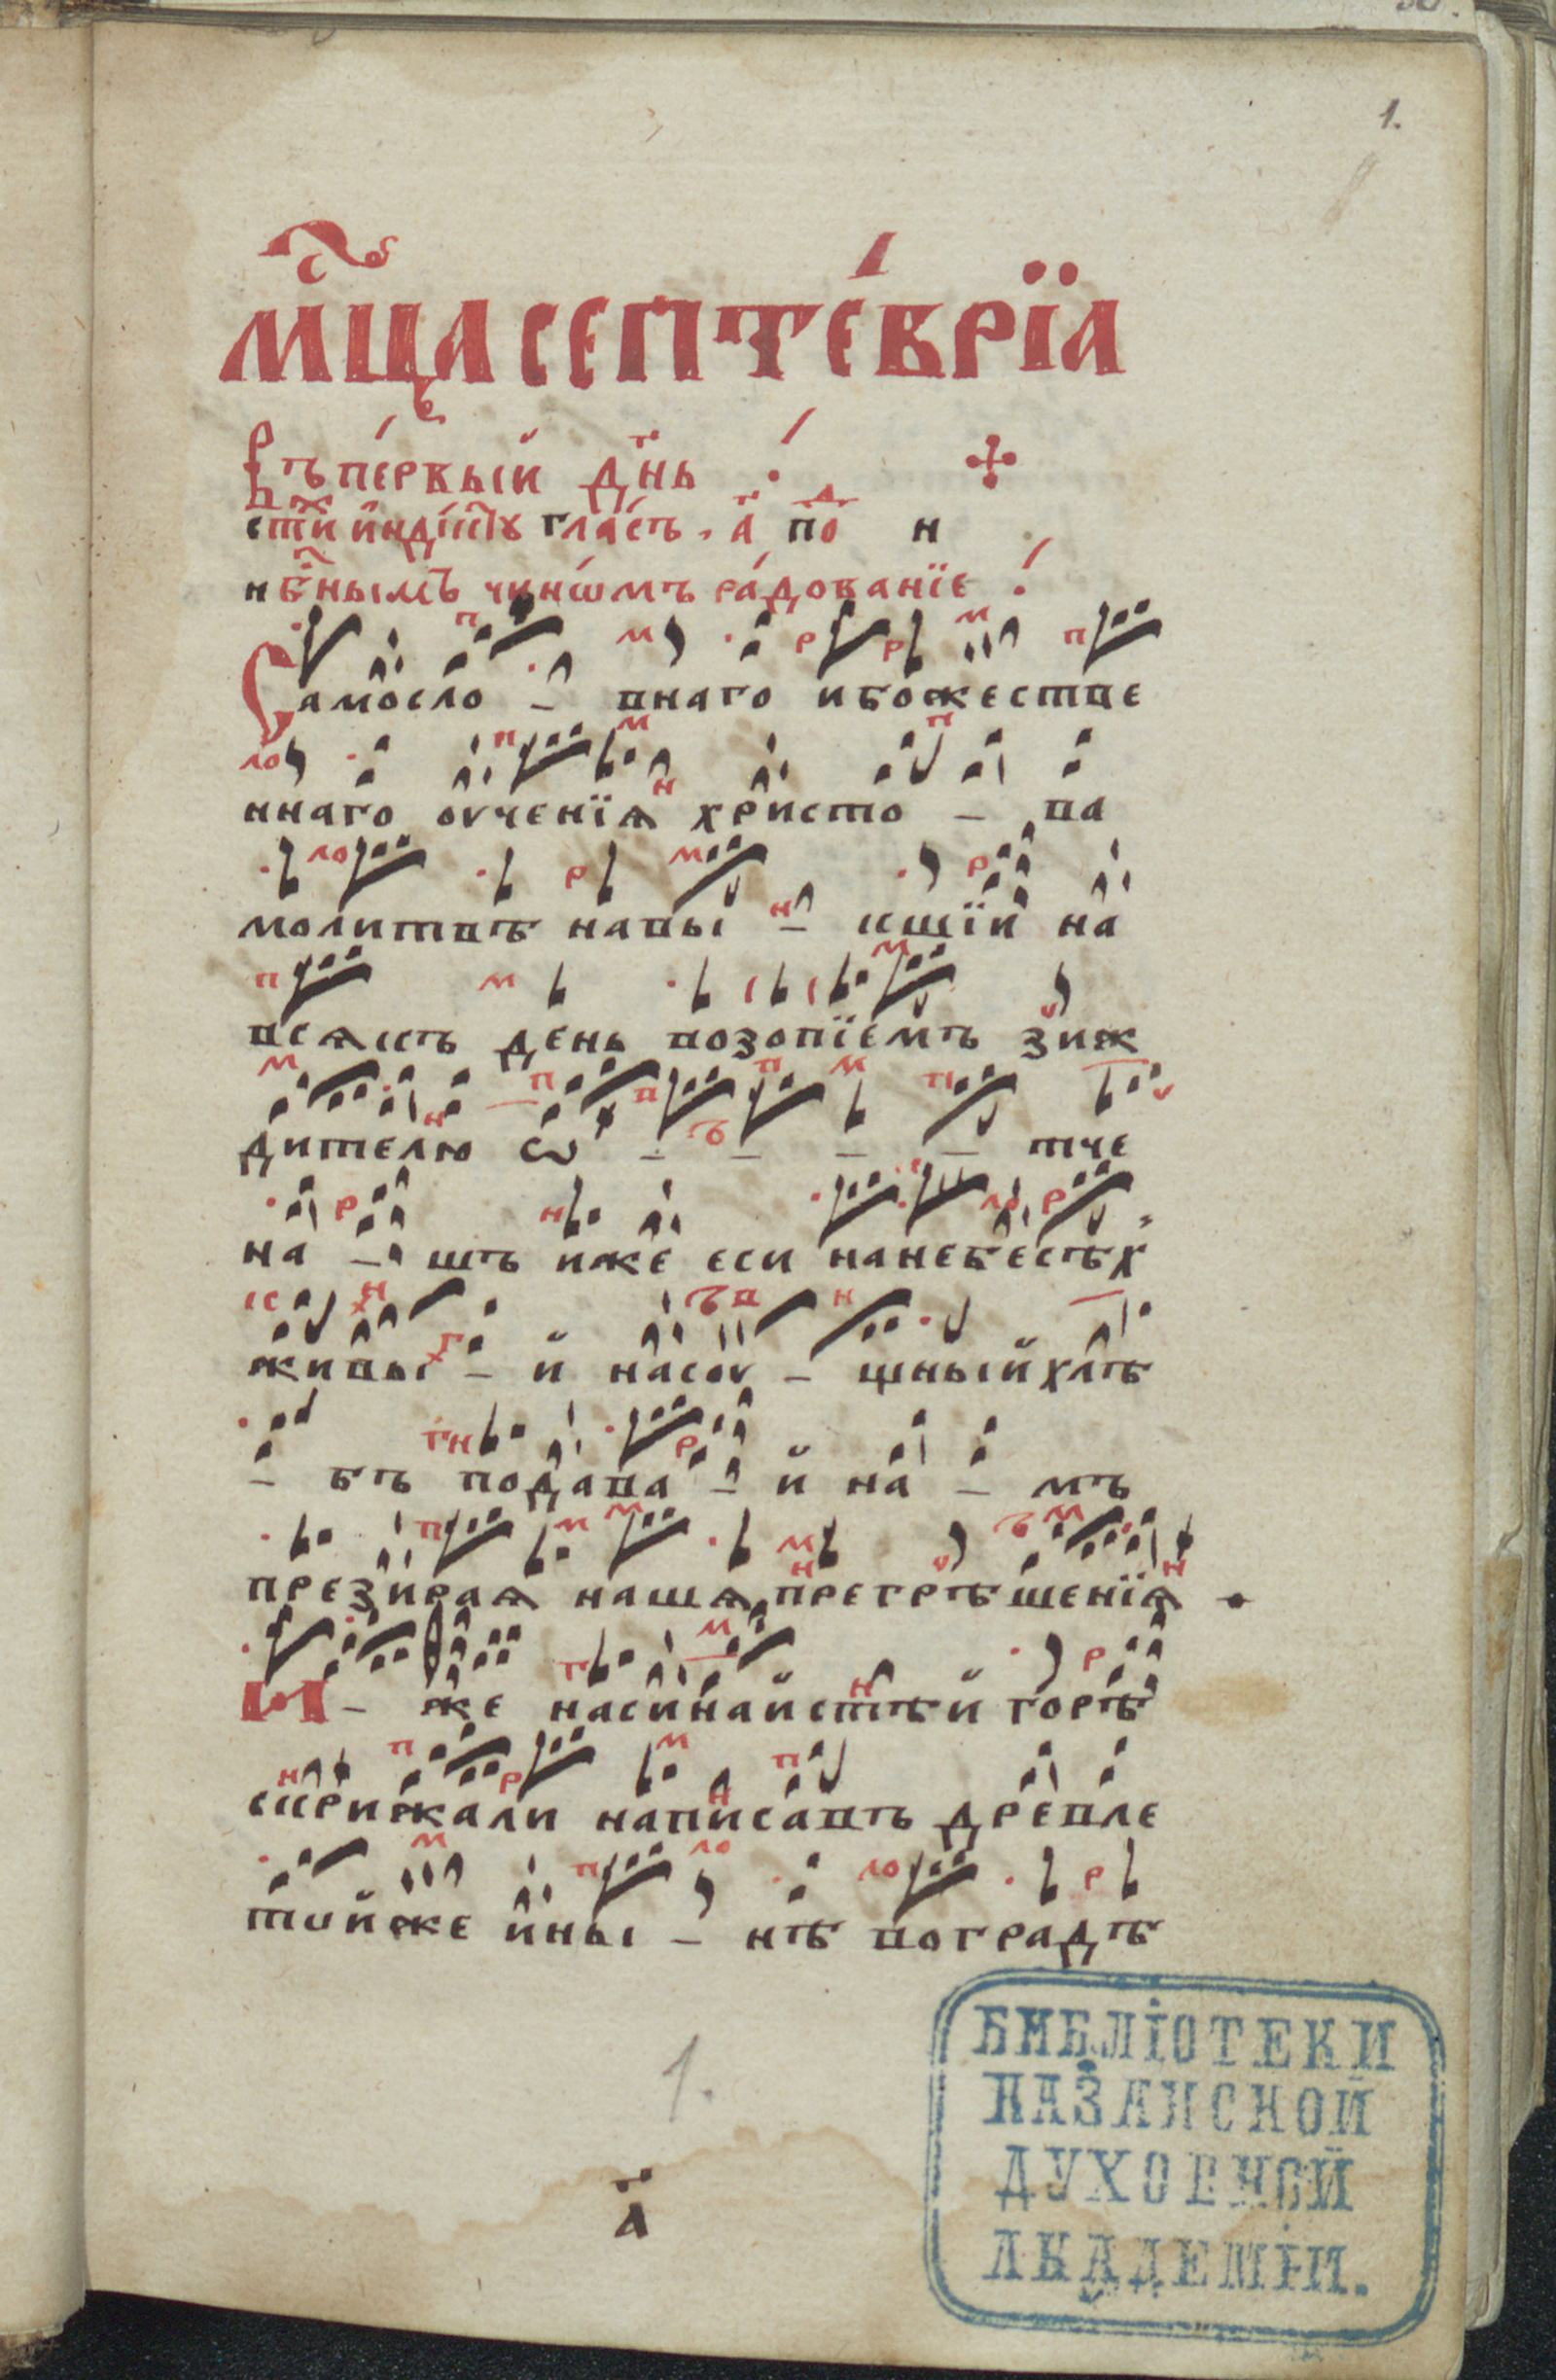 1.
М҃ЦА СЕПТЕ́ВРЇА
Въ пе́рвый д҃нь
ст҃и и҆нді́кту гла́съ, а҃ по н
нб҃нымъ чинѡ́мъ ра́дованїе
Самосло – внаго и божестве
ннаго оученїѧ христо – ва
молитвѣ навы – кшїи на
всѧкъ день возопїемъ зиж
дителю ѿ – – – – тче
на – шъ иже еси на небесѣх
живы – й насоу – щный хлѣ
– бъ подава – й на – мъ
презираѧ нашѧ прегрѣшенїѧ
И – же на синайстѣй горѣ
скрижали написавъ древле
той же и ны – нѣ во градѣ
1.
а҃
БИБЛІОТЕКИ
КАЗАНСКОЙ
ДУХОВНОЙ
АКАДЕМІИ.